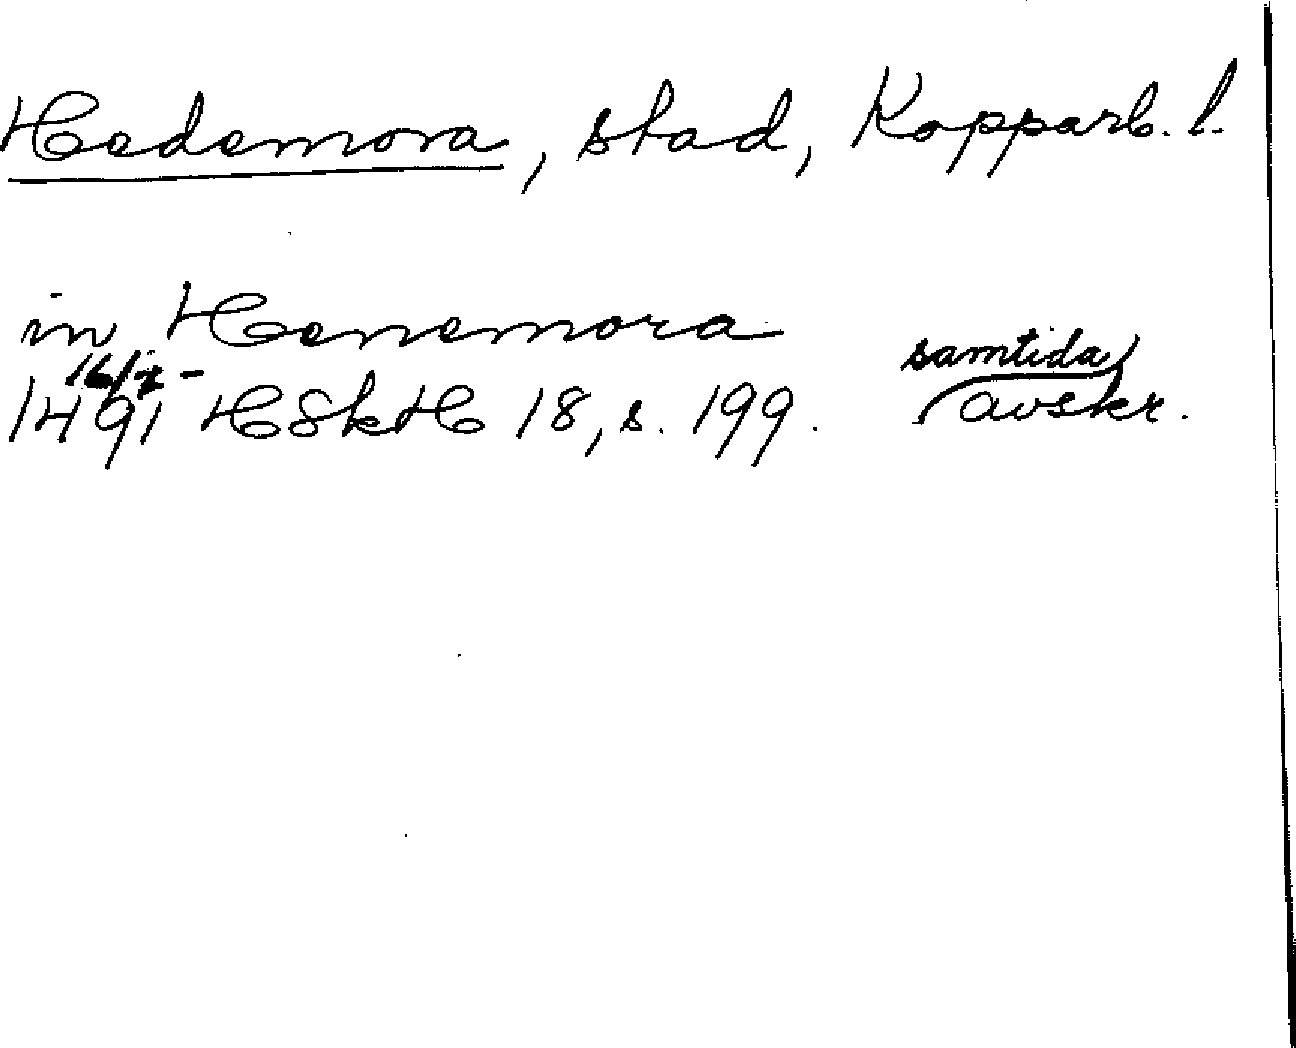 Hedemora, stad, Kopparb. l.
in Henemora
samtida
1491 HSkH 18, s. 199. avskr.